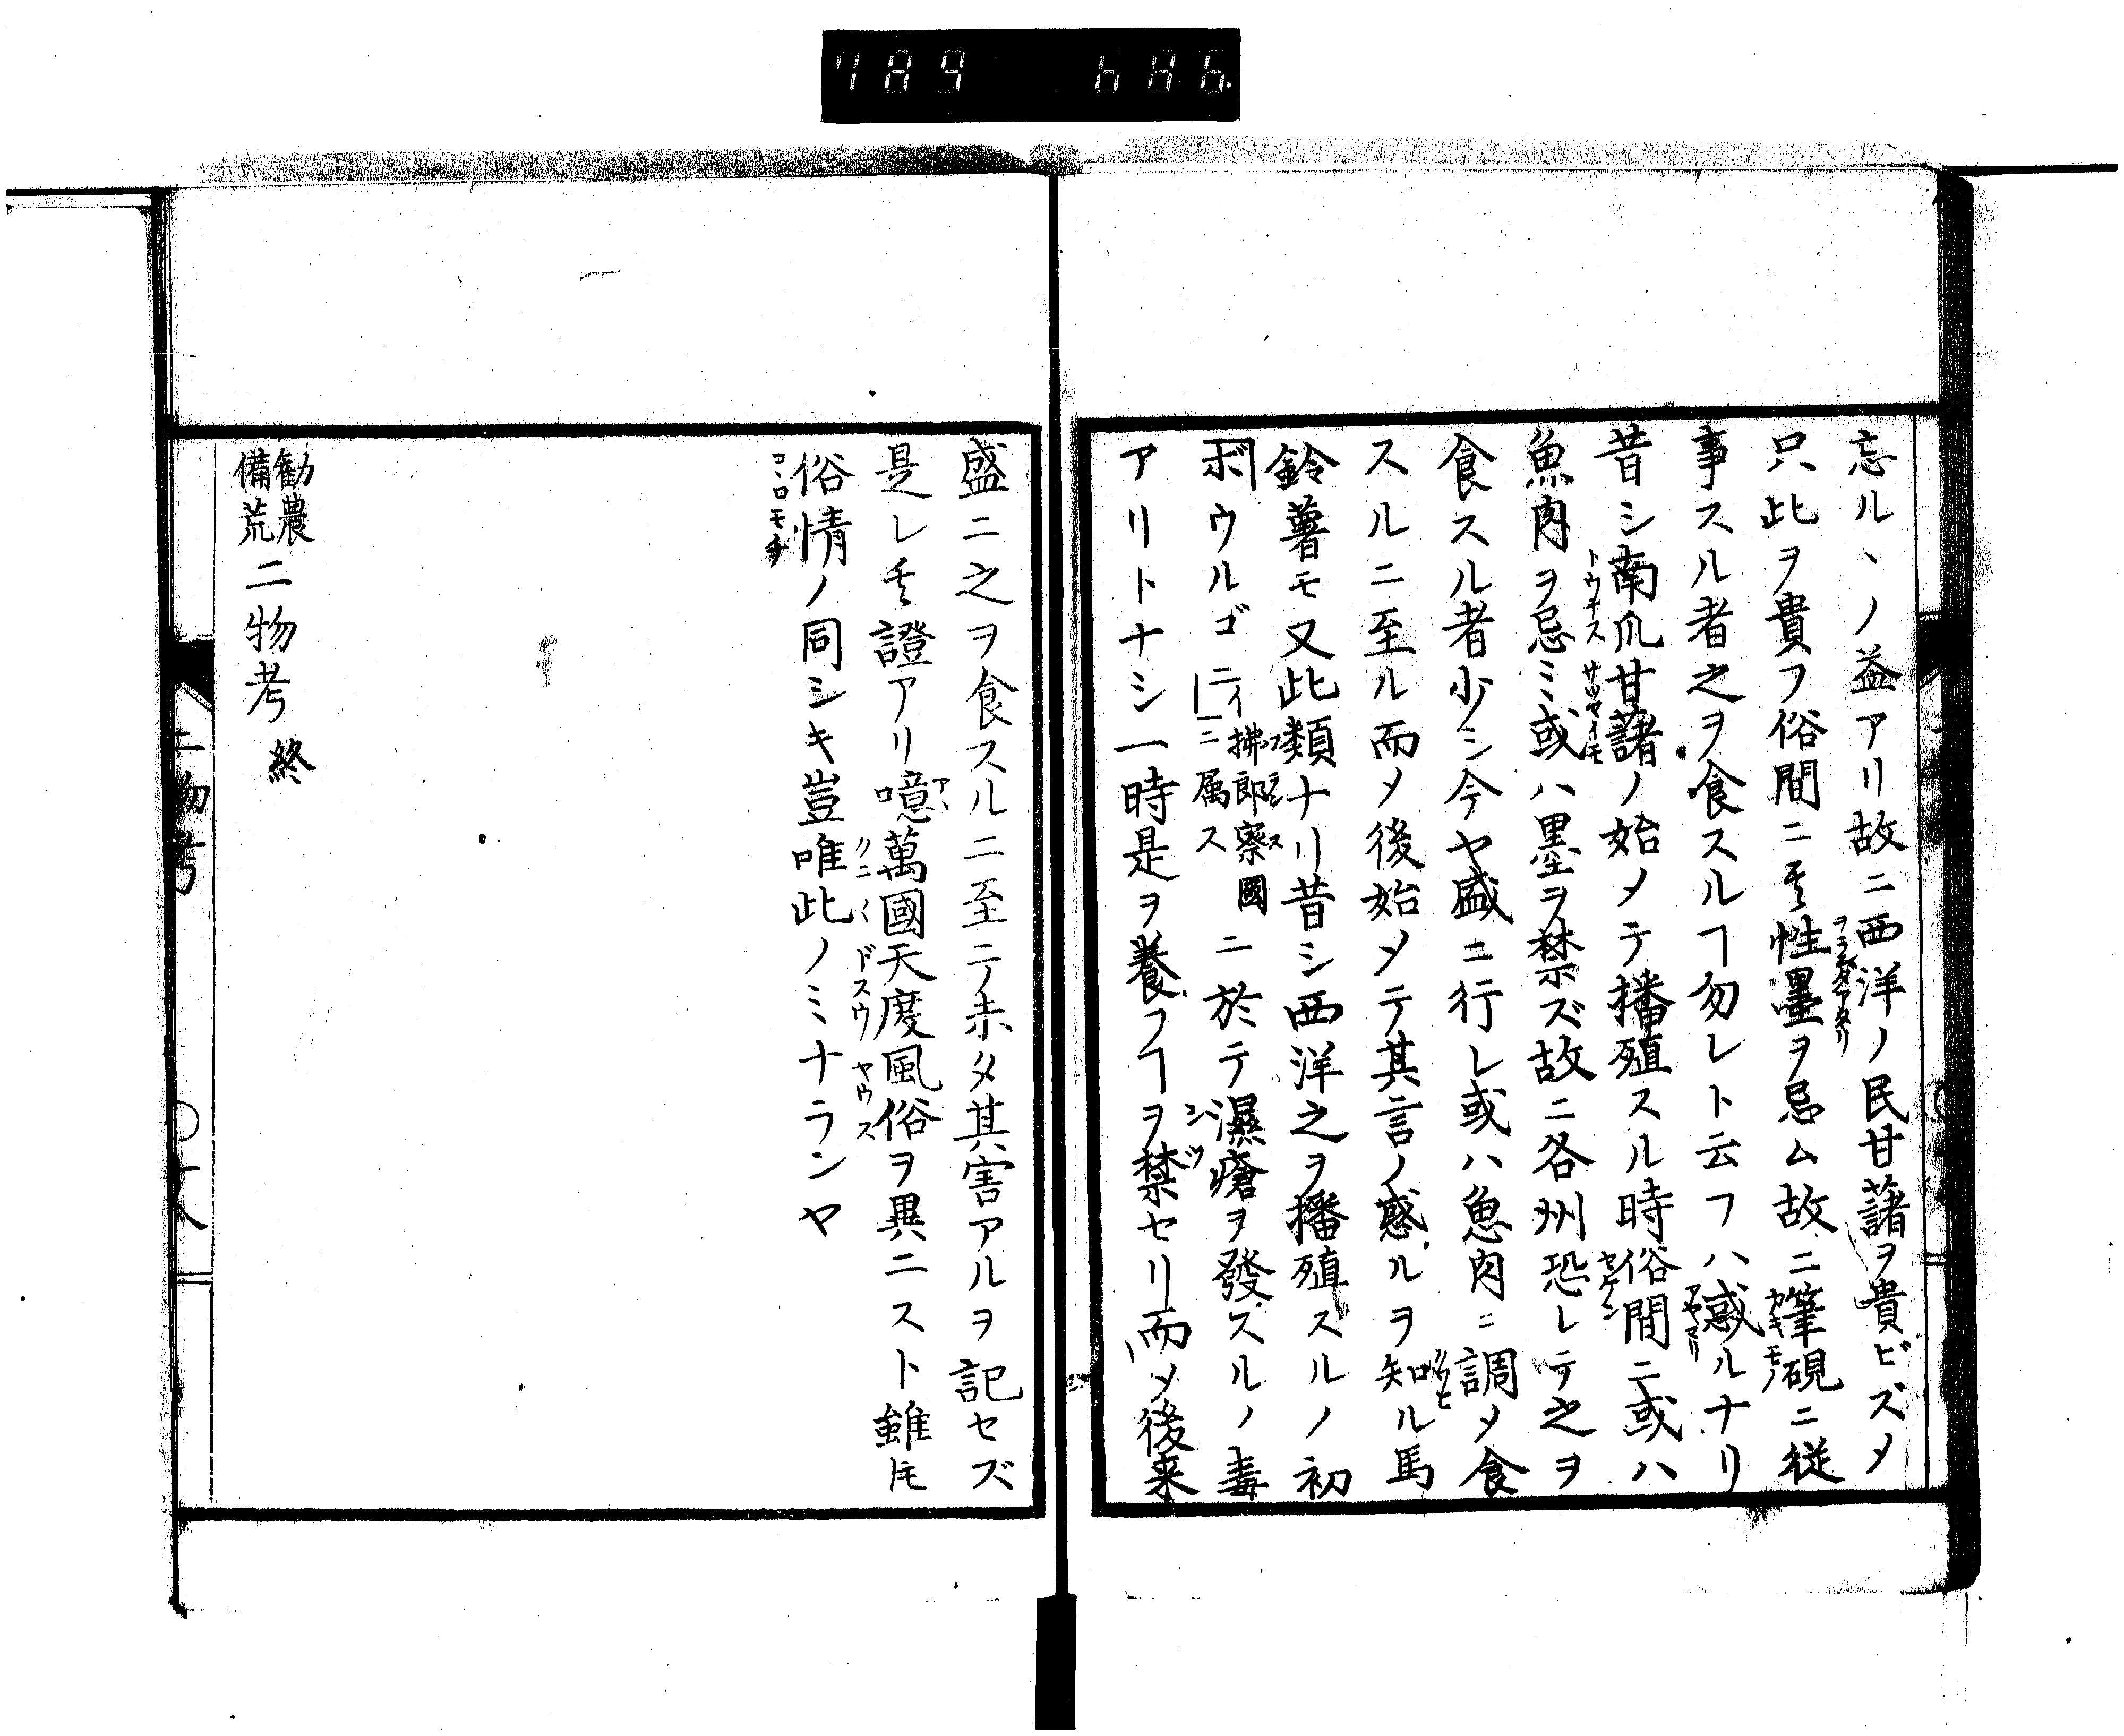 忘ルヽノ益アリ故ニ西洋ノ民甘藷ヲ貴ビズメ
只此ヲ貴フ俗間ニ其性墨ヲ忌ム故ニ筆硯ニ従
事スル者之ヲ食スルヿ勿レト云フハ惑ルナリ
昔シ南瓜甘藷ノ始メテ播殖スル時俗間ニ或ハ
魚肉ヲ忌ミ或ハ墨ヲ禁ズ故ニ各州恐レテ之ヲ
食スル者少シ今ヤ盛ニ行レ或ハ魚肉ニ調メ食
スルニ至ル而メ後始メテ其言ノ惑ルヲ知ル馬
鈴薯モ又此類ナリ昔シ西洋之ヲ播殖スルノ初
ボウルゴニイ拂郎察國ニ属スニ於テ濕瘡ヲ發スルノ毒
アリトナシ一時是ヲ養フヿヲ禁セリ而メ後来
盛ニ之ヲ食スルニ至テ未タ其害アルヲ記セズ
是レ其證アリ噫萬國天度風俗ヲ異ニスト雖𪜈
俗情ノ同シキ豈唯此ノミナランヤ
勧農
備荒
二物考 終
二物考